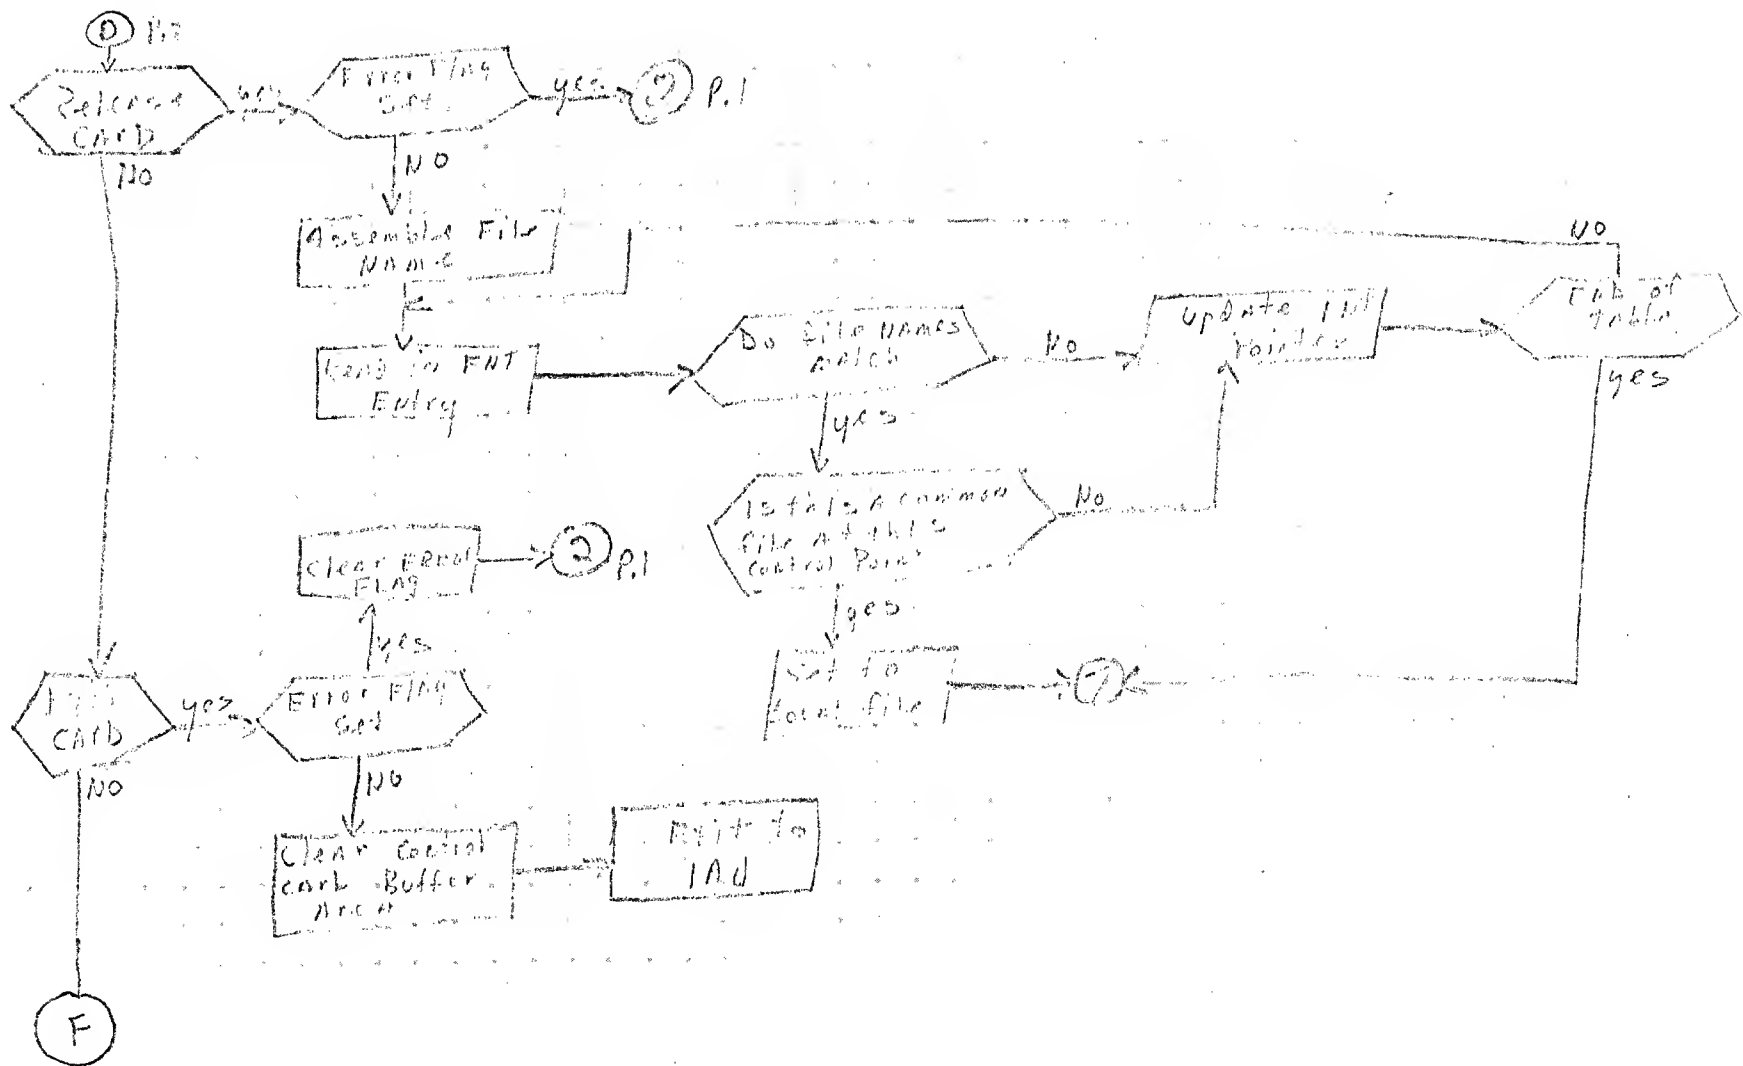 D
Release
CARD
yes
Error Flag
Set
yes
2
P.1
NO
NO
Assemble File
NAME
NO
Read in FNT
Entry
Do file NAMES
match
NO
Update FNT
Pointer
End of
Table
yes
yes
Is this A common
file At this
Control Point
No
Clear ERROR
FLAg
2
P.1
yes
yes
Set to
local file
7
CArD
yes
Error FlAg
Set
NO
NO
CleAr Control
cArd Buffer
AreA
Exit to
1AJ
F